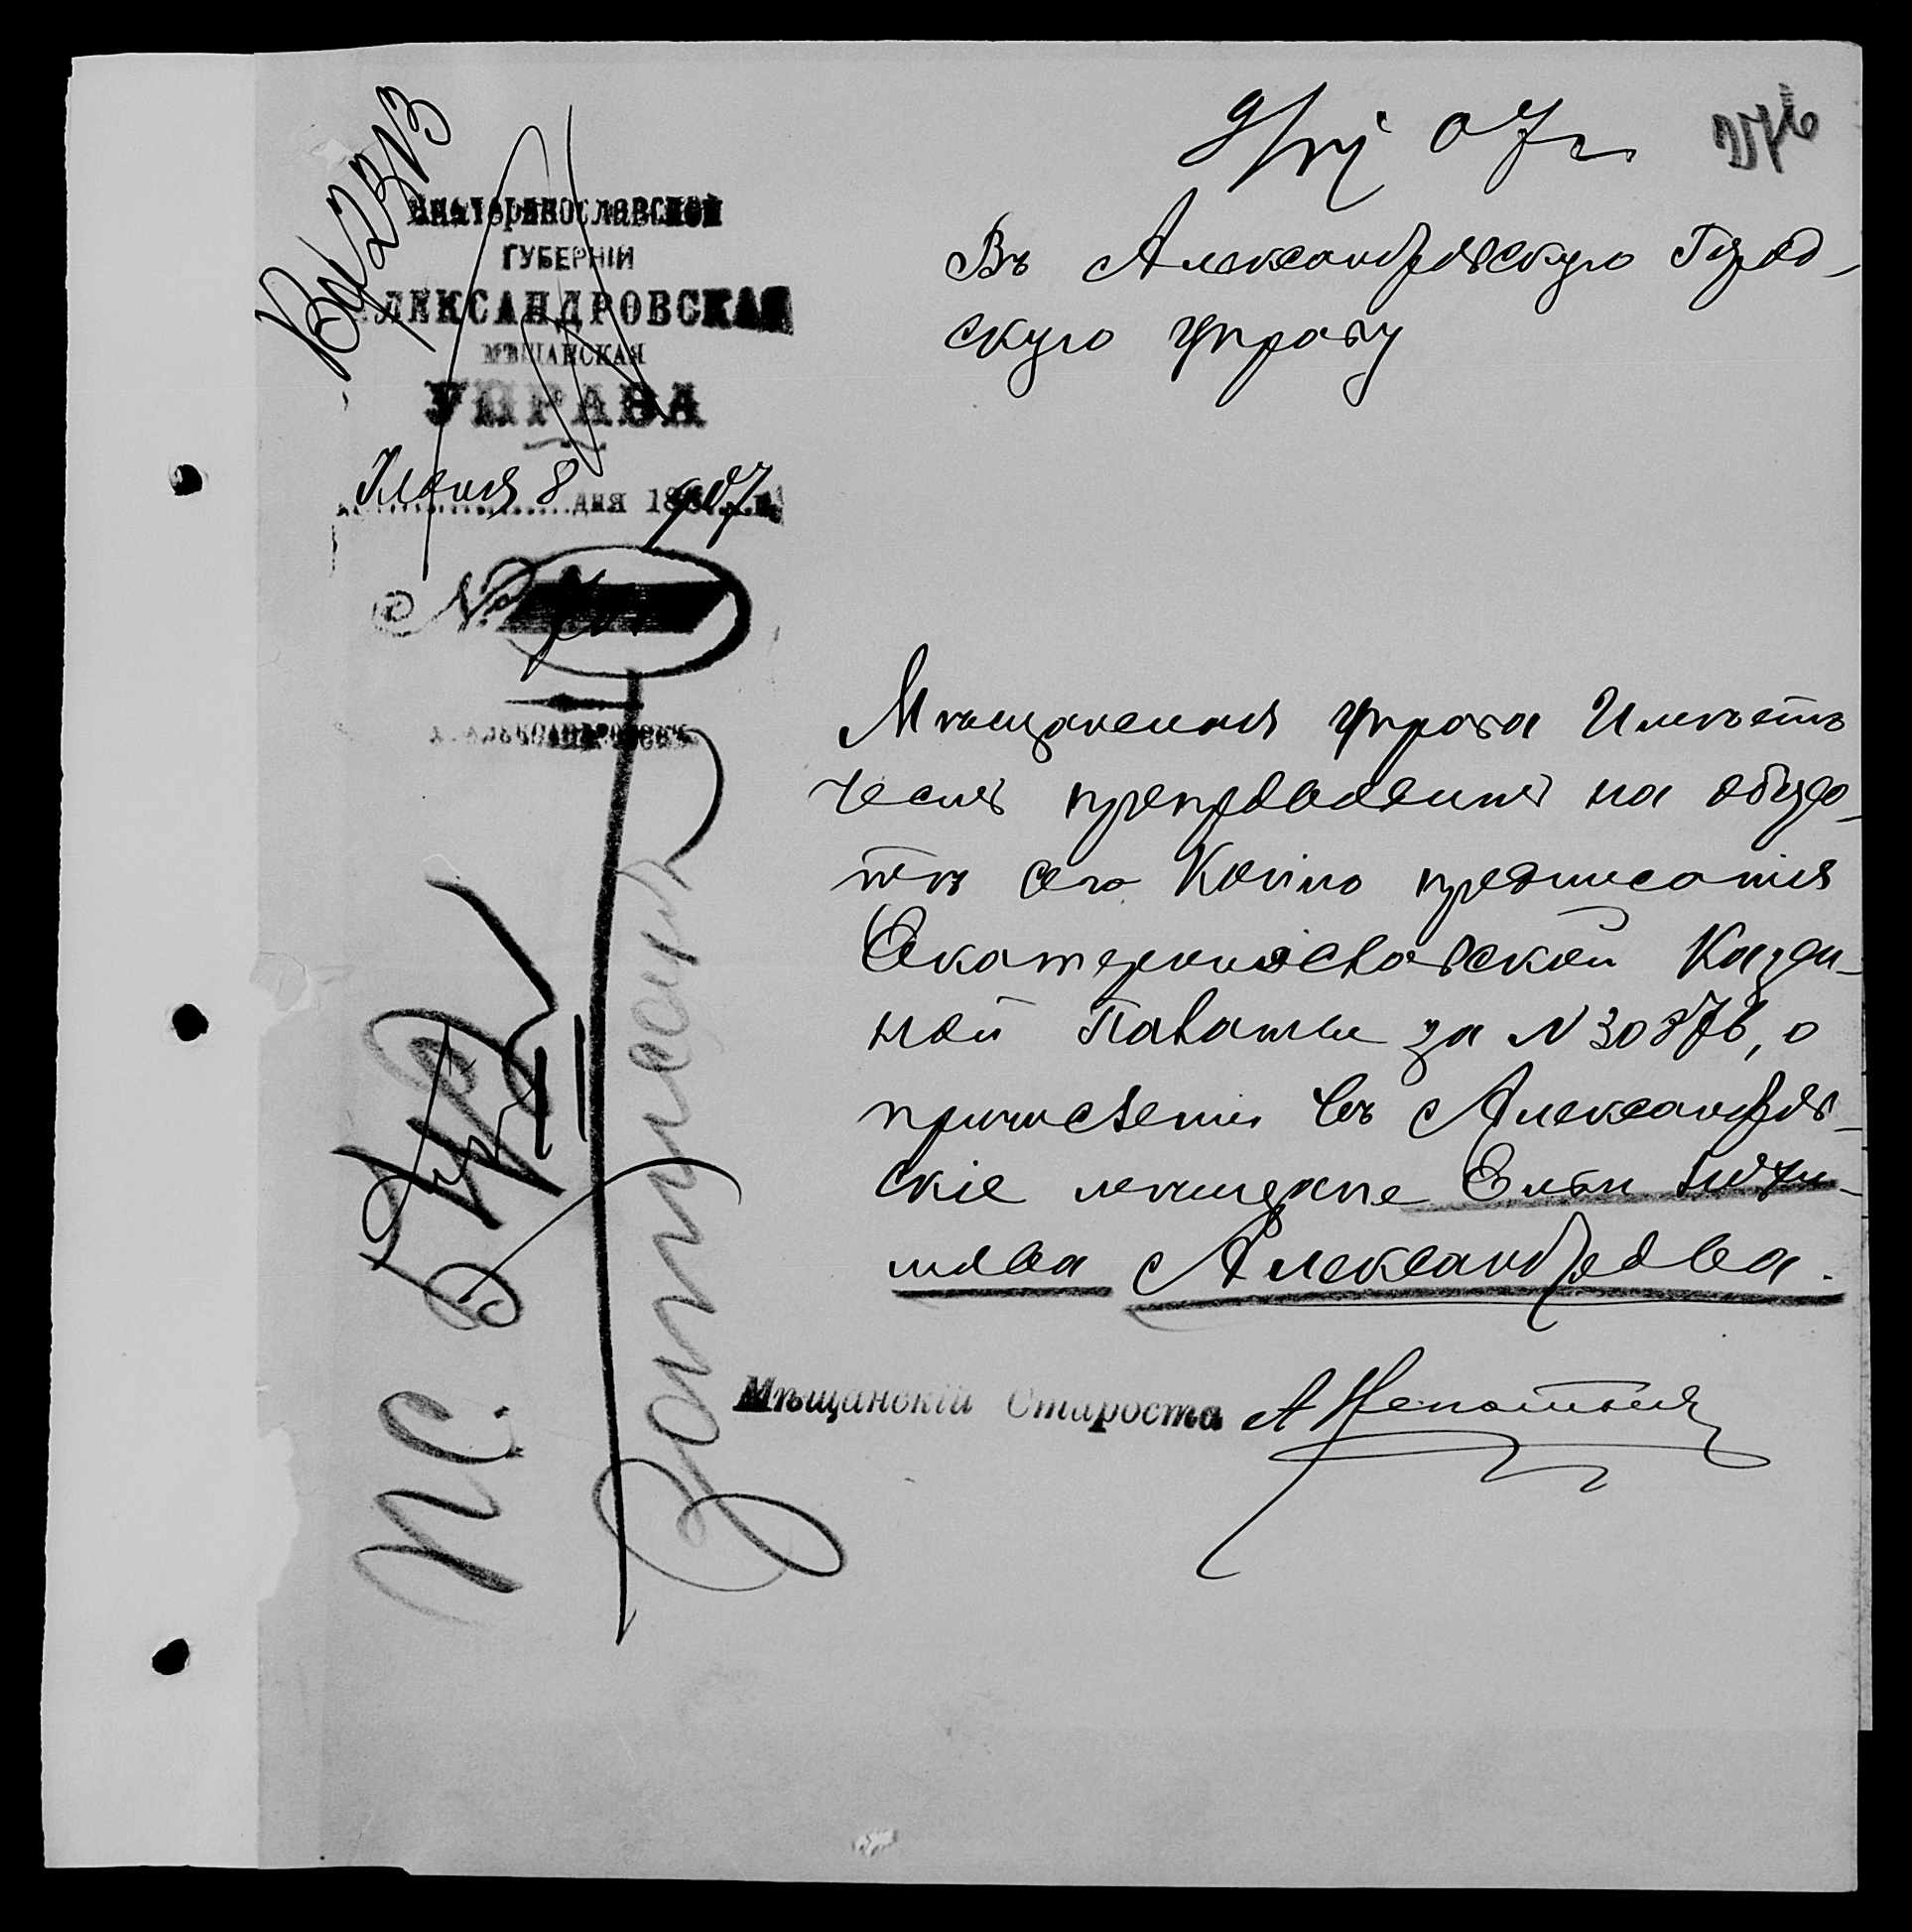 9/VI 07 г.
Вх 23/VI3
Екатеринославской
ГУБЕРНІИ
АЛЕКСАНДРОВСКАЯ
МѢЩАНСКАЯ
УПРАВА
8 дня 1907 г.
№
Г. АЛЕКСАНДРОВСКЪ
Въ Александровскую Город-
скую Управу
Мѣщанская управа Имѣетъ
честь препроводить на оборо-
тѣ сего Копію предписанія
Екатеринославской Казен-
ной Палаты за № 30876, о
причисленіи въ Александров-
скіе мѣщане
Александрова.
Мѣщанскій Староста А
Записать